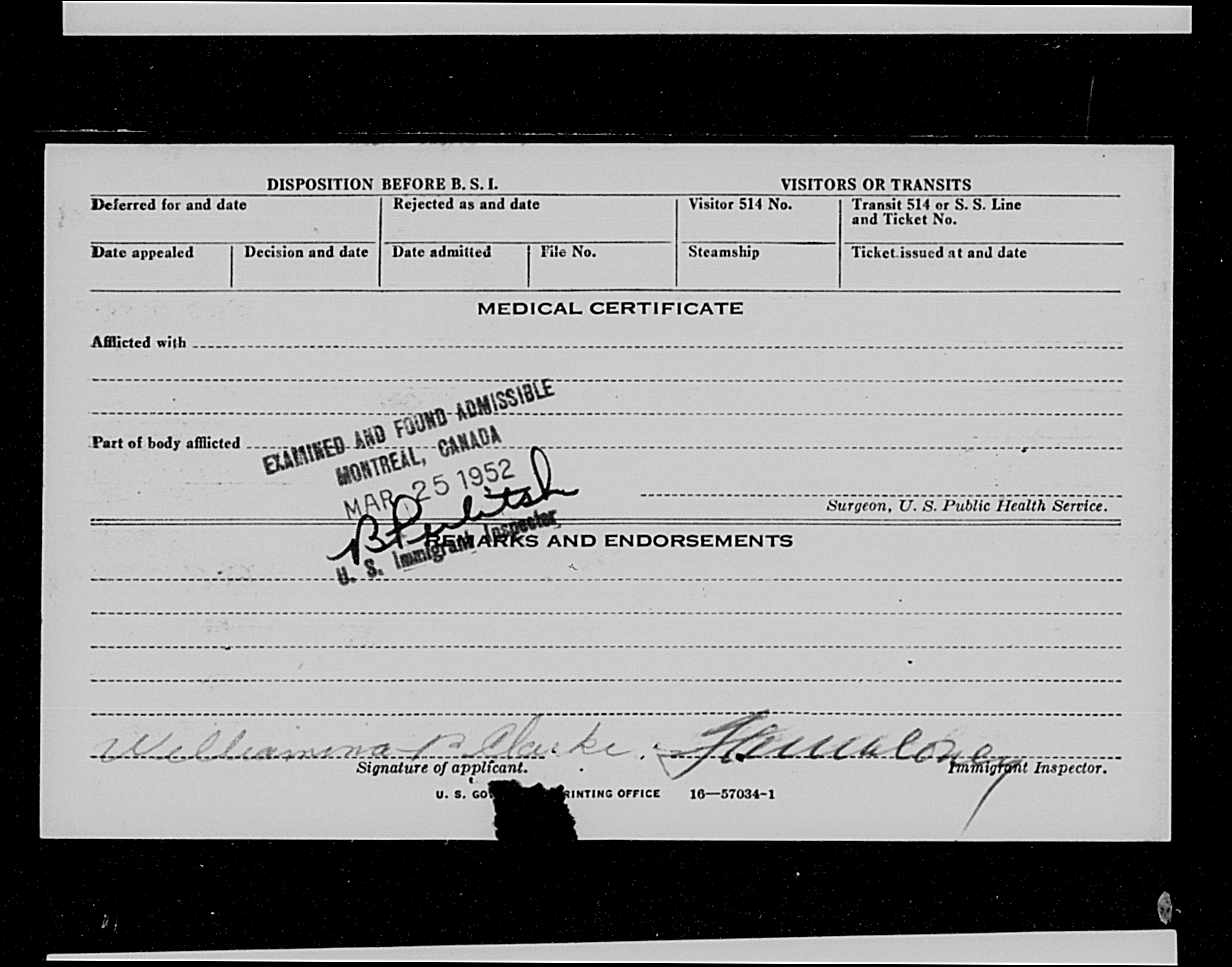 DISPOSITION BEFORE B. S. I. VISITORS OR TRANSITS
Deferred for and date Rejected as and date Visitor 514 No. Transit 514 or S. S. Line
and Ticket No.
Date appealed Decision and date Date admitted File No. Steamship Ticket issued at and date
MEDICAL CERTIFICATE
Afflicted with
EXAMINED AND FOUND ADMISSIBLE
Part of body afflicted
MONTREAL, CANADA
MAR 25 1952
Surgeon, U. S. Public Health Service.
U. S. Immigrant Inspector
REMARKS AND ENDORSEMENTS
Williamina B Clarke.
Signature of applicant. Immigrant Inspector.
U. S. GO RINTING OFFICE 16—57034-1